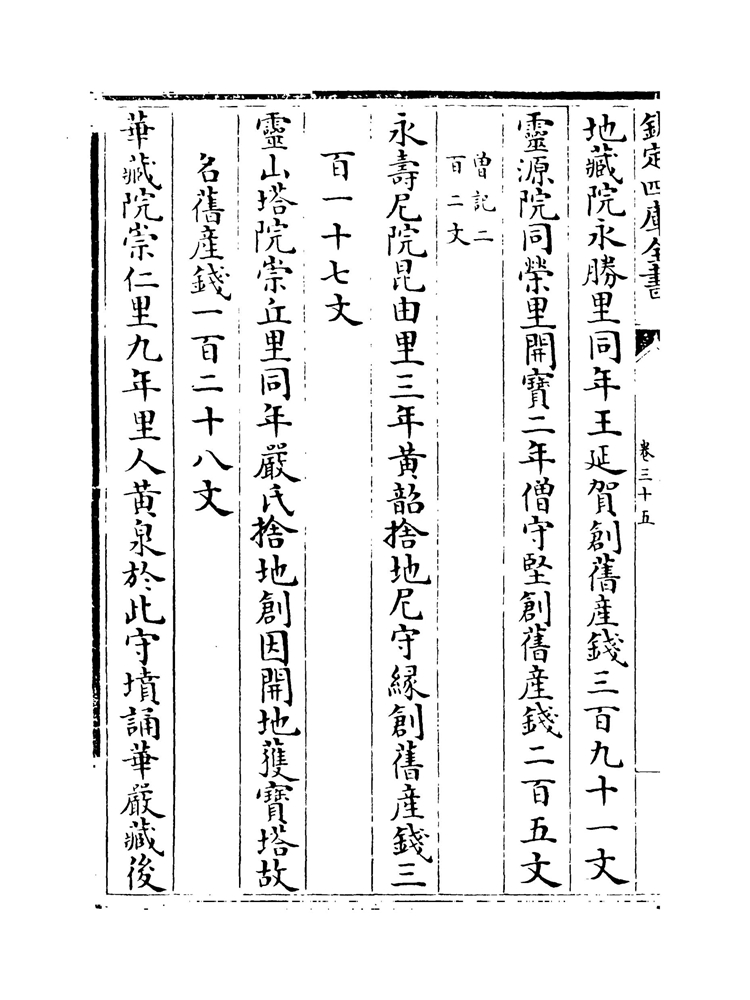 欽定四庫全書
卷三十五
地藏院永勝里同年王延賀創舊産錢三百九十一文
靈源院同榮里開寶二年僧守堅創舊産錢二百五文
曽記二
百二文
永壽尼院昆由里三年黄韶捨地尼守縁創舊産錢三
百一十七文
靈山塔院崇丘里同年嚴氏捨地創因開地獲寶塔故
名舊産錢一百二十八文
華藏院崇仁里九年里人黄泉於此守墳誦華嚴藏後